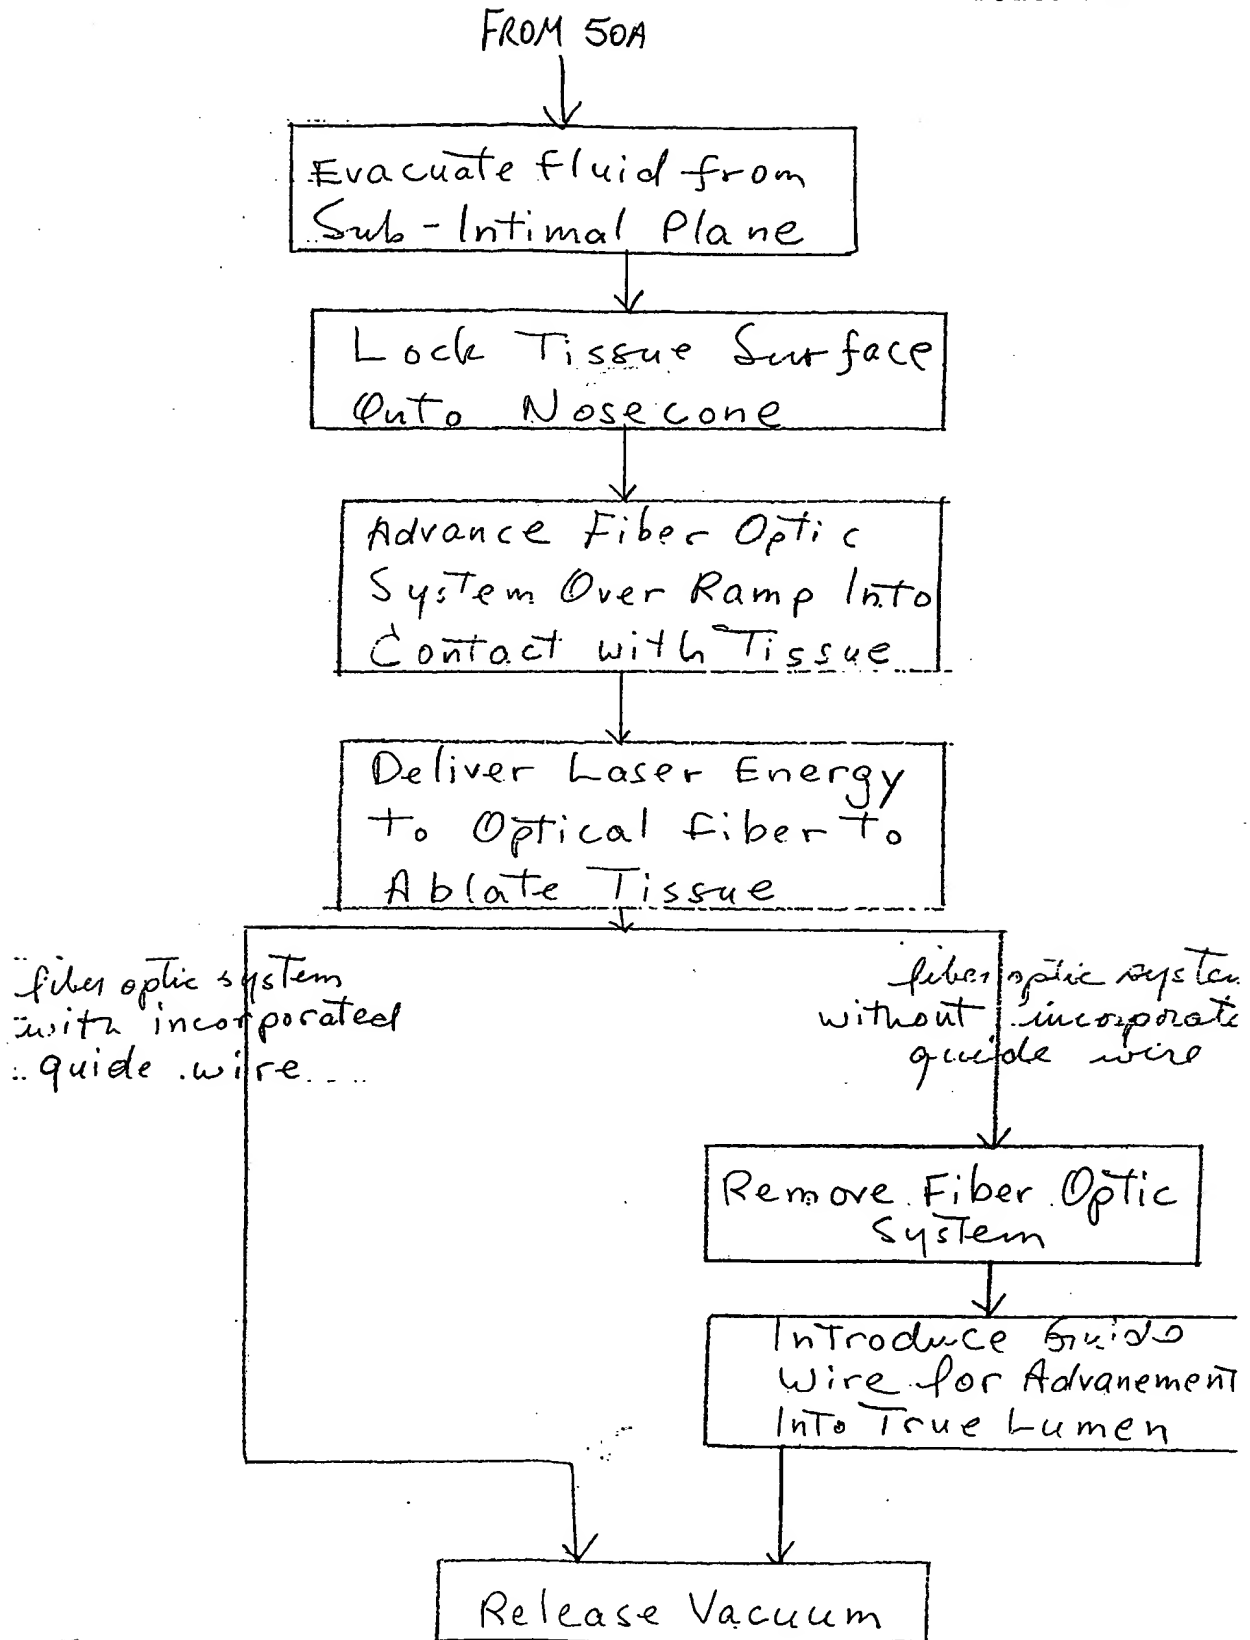 FROM 50A
Evacuate Fluid from
Sub-Intimal Plane
Lock Tissue Surface
Onto Nosecone
Advance Fiber Optic
System Over Ramp Into
Contact with Tissue
Deliver Laser Energy
To Optical Fiber To
Ablate Tissue
fiber optic system
with incorporated
guide wire
fiber optic system
without incorporate
guide wire
Remove Fiber Optic
System
Introduce Guide
Wire for Advanement
Into True Lumen
Release Vacuum